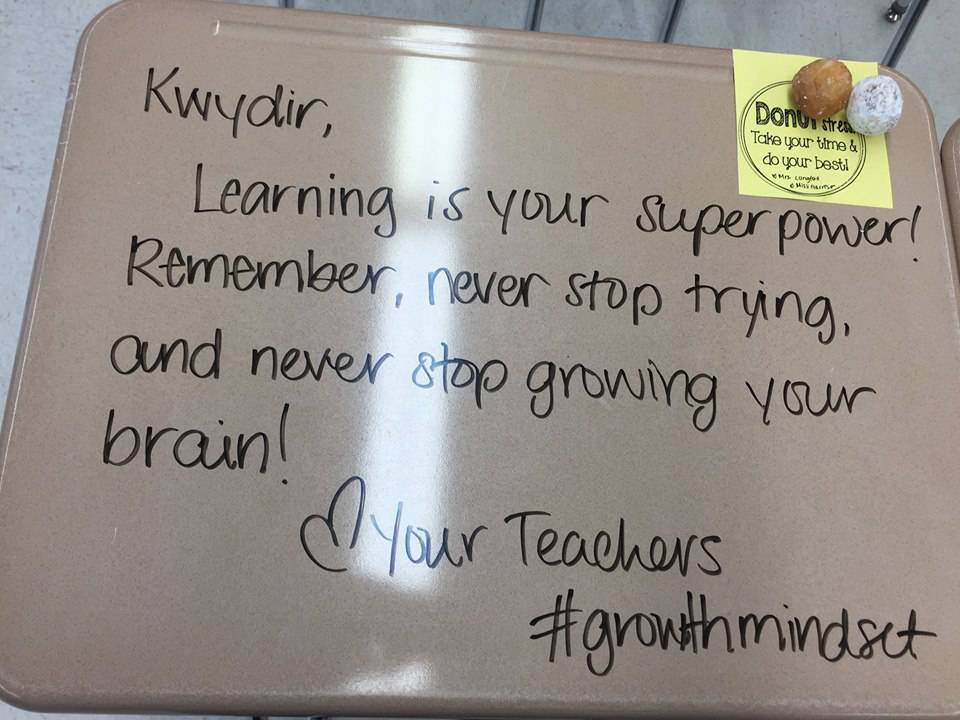 Kwydir,
Learning is your superpower!
Remember, never stop trying,
and never stop growing your
brain!
♡ Your Teachers
#growthmindset
Donut stress
Take your time &
do your best!
Mrs.
Miss